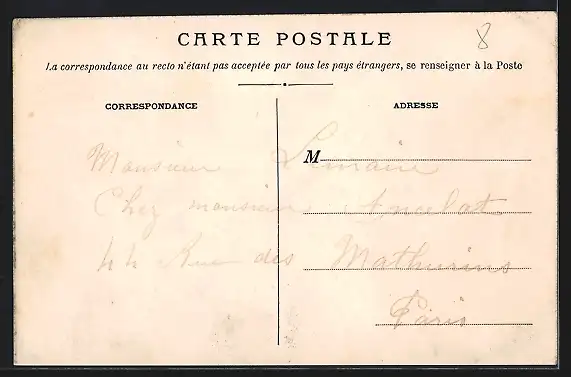 8
CARTE POSTALE
La correspondance au recto n'étant pas acceptée par tous les pays étrangers, se renseigner à la Poste
CORRESPONDANCE
ADRESSE
M
Monsieur
Chez monsieur
44 Rue des Mathurins
Paris